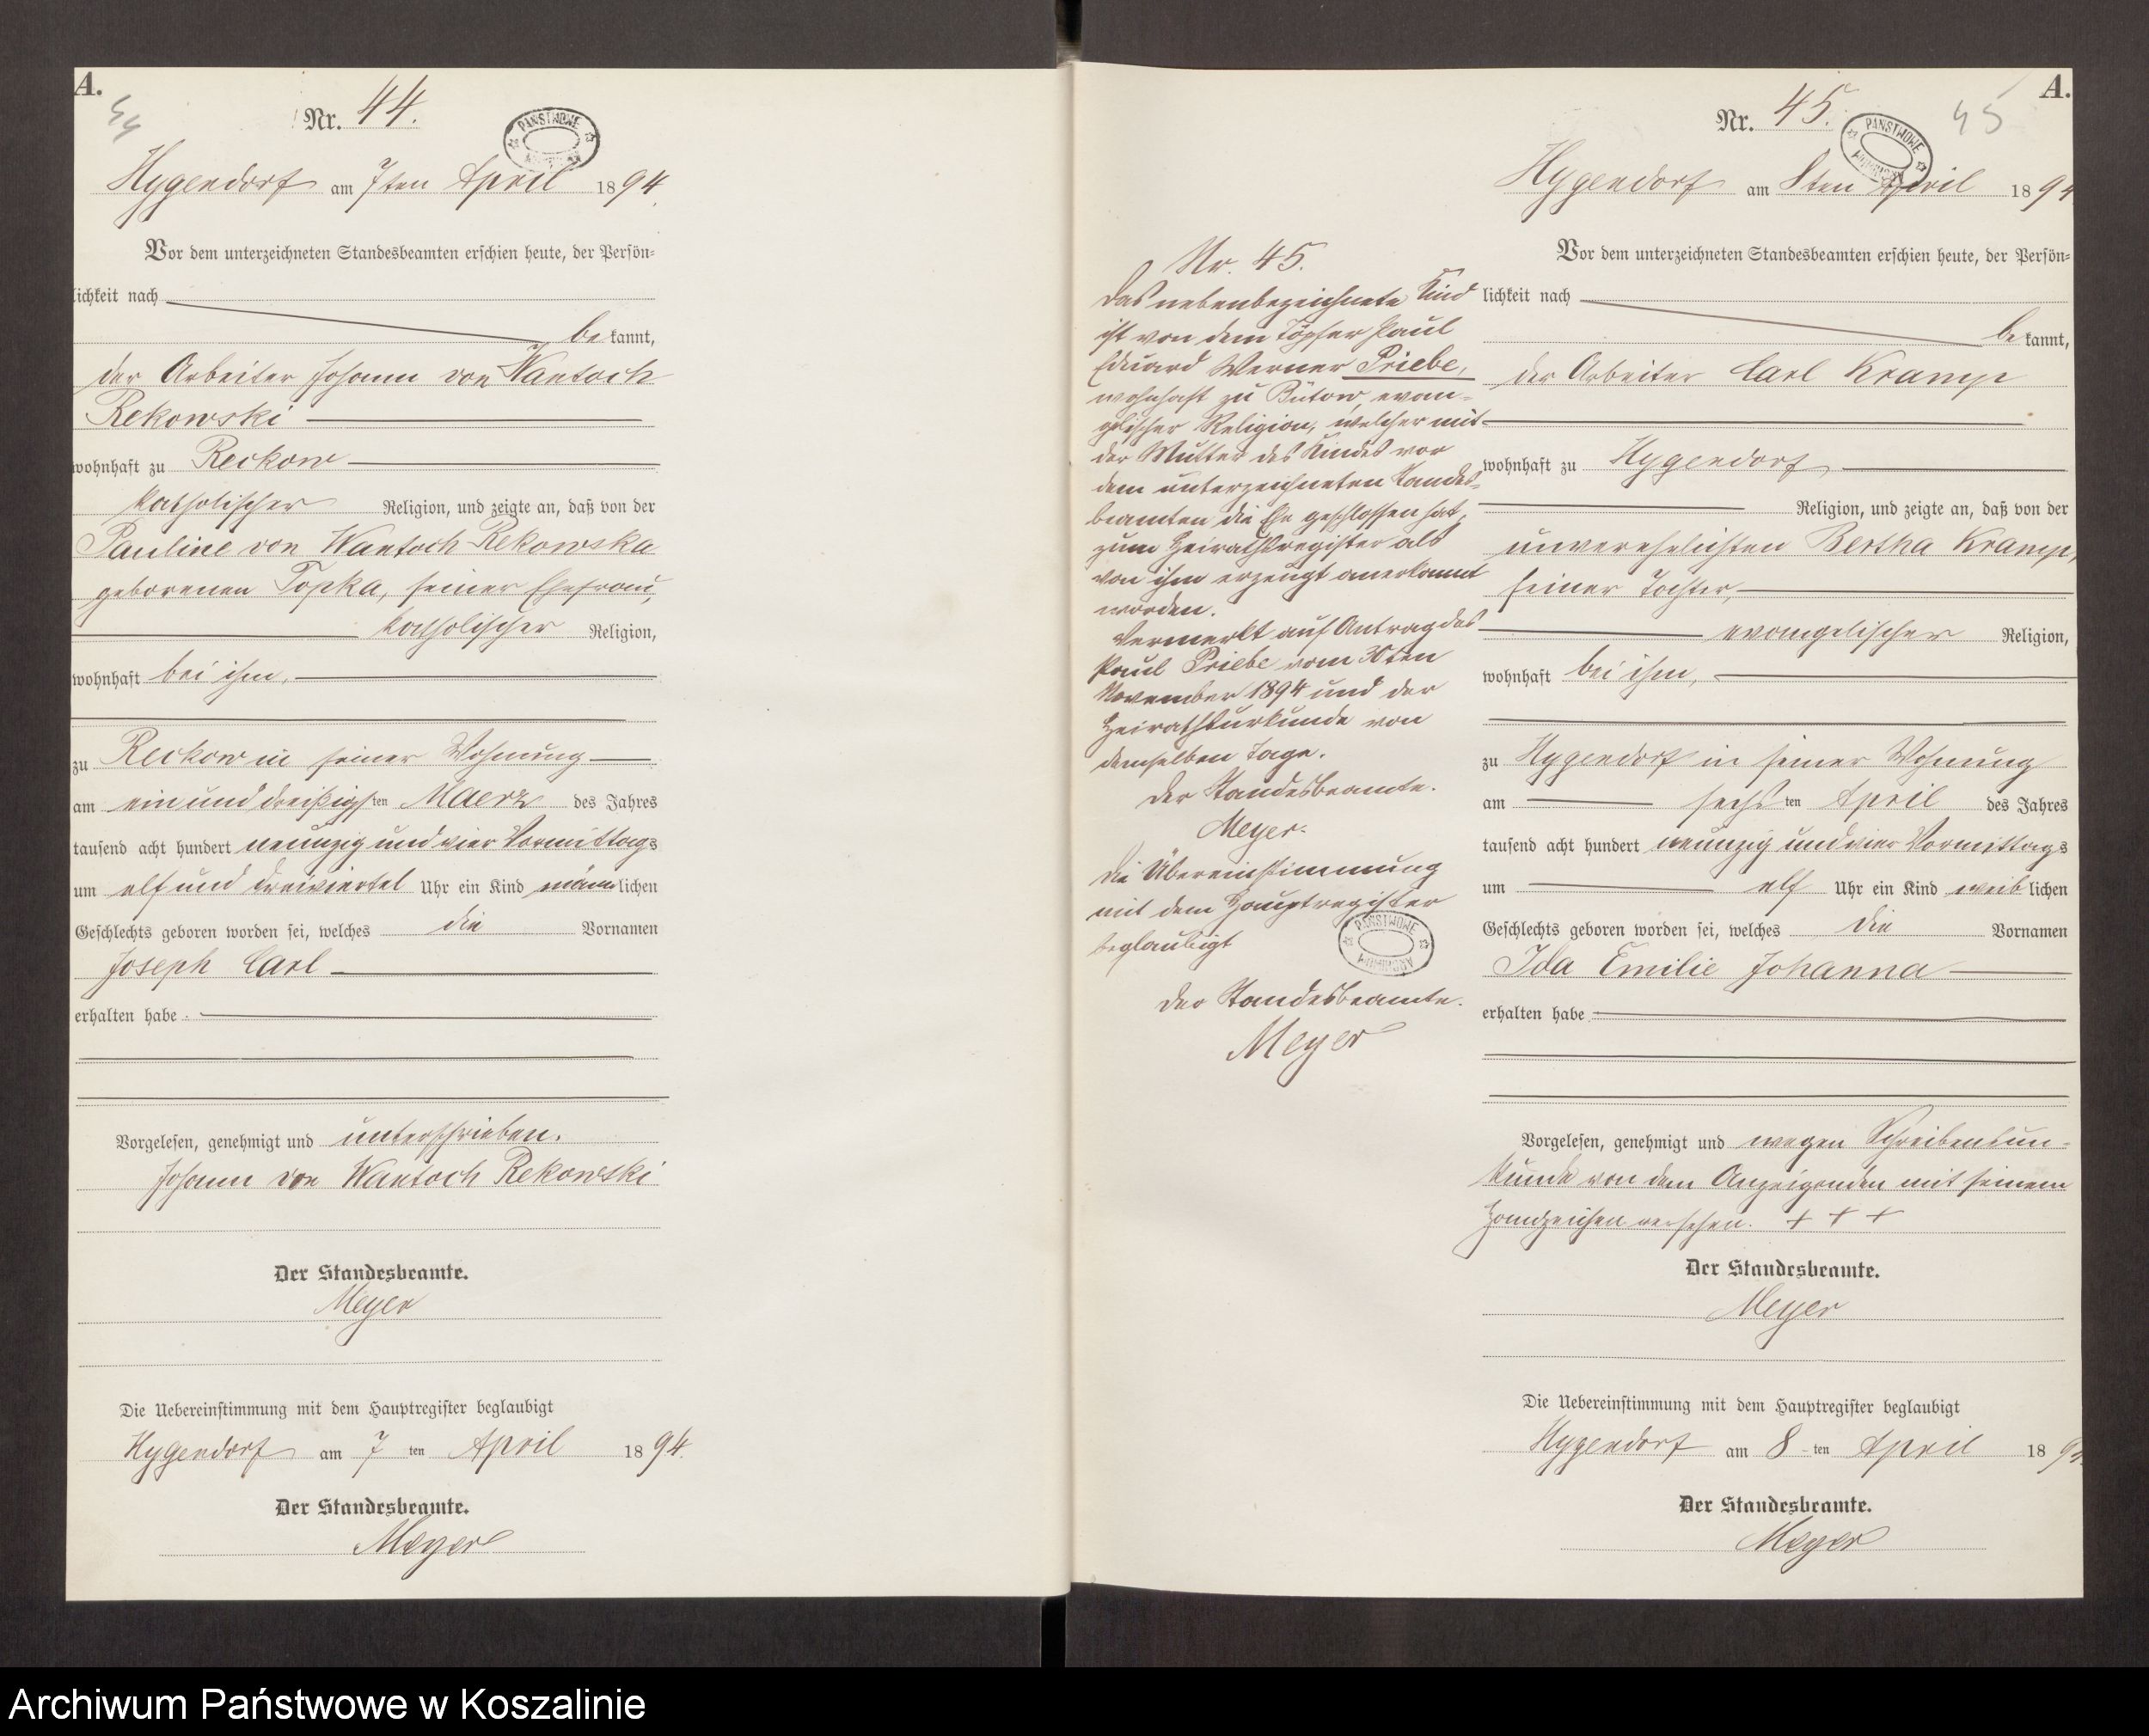 A.
44
Nr. 44.
PAŃSTWOWE ARCHIWUM
Hygendorf am 7ten April 1894.
Vor dem unterzeichneten Standesbeamten erschien heute, der Persön-
lichkeit nach
be kannt,
der Arbeiter Johann von Wantoch
Rekowski
wohnhaft zu Reckow
katholischer Religion, und zeigte an, daß von der
Pauline von Wantoch Rekowska
geborenen Topka, seiner Ehefrau,
katholischer Religion,
wohnhaft bei ihm,
zu Reckow in seiner Wohnung
am ein und dreißigsten Maerz des Jahres
tausend acht hundert neunzig und vier Vormittags
um elf und dreiviertel Uhr ein Kind männlichen
Geschlechts geboren worden sei, welches die Vornamen
Joseph Carl
erhalten habe.
Vorgelesen, genehmigt und unterschrieben.
Johann von Wantoch Rekowski
Der Standesbeamte.
Meyer
Die Uebereinstimmung mit dem Hauptregister beglaubigt
Hygendorf am 7 ten April 1894.
Der Standesbeamte.
Meyer
Nr. 45.
Das nebenbezeichnete Kind
ist von dem Töpfer Paul
Eduard Werner Priebe,
wohnhaft zu Bütow, evan-
gelischer Religion, welcher mit
der Mutter des Kindes vor
dem unterzeichneten Standes-
beamten die Ehe geschlossen hat,
zum Heirathsregister als
von ihm erzeugt anerkannt
worden.
Vermerkt auf Antrag des
Paul Priebe vom 30ten
November 1894 und der
Heirathsurkunde von
demselben Tage.
Der Standesbeamte.
Meyer.
Die Übereinstimmung
mit dem Hauptregister
beglaubigt
PAŃSTWOWE ARCHIWUM
Der Standesbeamte.
Meyer
A.
45
Nr. 45.
PAŃSTWOWE ARCHIWUM
Hygendorf am 8ten April 1894
Vor dem unterzeichneten Standesbeamten erschien heute, der Persön-
lichkeit nach
be kannt,
der Arbeiter Carl Kramp
wohnhaft zu Hygendorf
Religion, und zeigte an, daß von der
unverehelichten Bertha Kramp,
seiner Tochter,
evangelischer Religion,
wohnhaft bei ihm,
zu Hygendorf in seiner Wohnung
am sechsten April des Jahres
tausend acht hundert neunzig und vier Vormittags
um elf Uhr ein Kind weiblichen
Geschlechts geboren worden sei, welches die Vornamen
Ida Emilie Johanna
erhalten habe
Vorgelesen, genehmigt und wegen Schreibensun-
kunde von dem Anzeigenden mit seinem
Handzeichen versehen. + + +
Der Standesbeamte.
Meyer
Die Uebereinstimmung mit dem Hauptregister beglaubigt
Hygendorf am 8 ten April 1894.
Der Standesbeamte.
Meyer
Archiwum Państwowe w Koszalinie